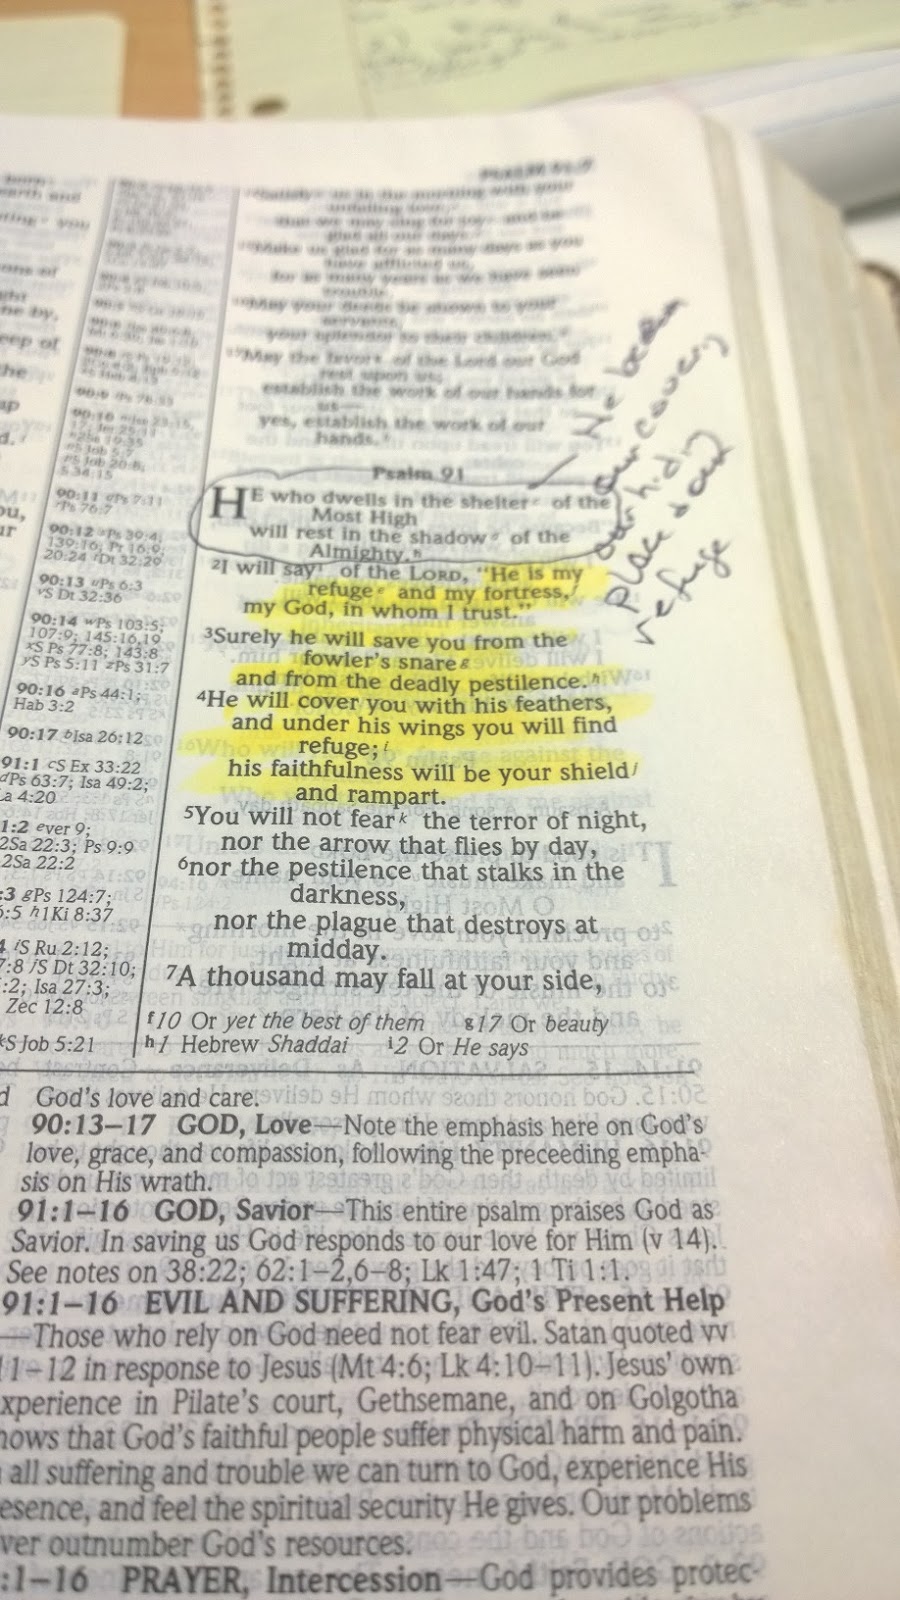 unfailing love,
glad all our days.
Make us glad for as many days as you
have afflicted us,
for as many years as we have seen
trouble.
May your deeds be shown to your
servants,
your splendor to their children.
17May the favor of the Lord our God
rest upon us;
establish the work of our hands for
us—
yes, establish the work of our
hands.
Psalm 91
HE who dwells in the shelter of the
Most High
will rest in the shadow of the
Almighty.h
2I will say of the LORD, "He is my
refuge and my fortress,
my God, in whom I trust."
3Surely he will save you from the
fowler's snare g
and from the deadly pestilence. h
4He will cover you with his feathers,
and under his wings you will find
refuge; i
his faithfulness will be your shield j
and rampart.
5You will not fear k the terror of night,
nor the arrow that flies by day,
6nor the pestilence that stalks in the
darkness,
nor the plague that destroys at
midday.
7A thousand may fall at your side,
f10 Or yet the best of them g17 Or beauty
h1 Hebrew Shaddai i2 Or He says
He
our covery
our hiding
place & our
refuge
90:11 Ps 7:11
Ps 76:7
90:12 Ps 39:4;
139:16; Pr 16:9;
20:24 Dt 32:29
90:13 uPs 6:3
vS Dt 32:36
90:14 wPs 103:5;
107:9; 145:16,19
xS Ps 77:8; 143:8
yS Ps 5:11 zPs 31:7
90:16 aPs 44:1;
Hab 3:2
90:17 bIsa 26:12
91:1 cS Ex 33:22
dPs 63:7; Isa 49:2;
La 4:20
1:2 ever 9;
2Sa 22:3; Ps 9:9
2Sa 22:2
:3 gPs 124:7;
6:5 h1Ki 8:37
4 iS Ru 2:12;
7:8 jS Dt 32:10;
:2; Isa 27:3;
Zec 12:8
kS Job 5:21
d God's love and care.
90:13–17 GOD, Love—Note the emphasis here on God's
love, grace, and compassion, following the preceeding empha-
sis on His wrath.
91:1–16 GOD, Savior—This entire psalm praises God as
Savior. In saving us God responds to our love for Him (v 14).
See notes on 38:22; 62:1–2,6–8; Lk 1:47; 1 Ti 1:1.
91:1–16 EVIL AND SUFFERING, God's Present Help
—Those who rely on God need not fear evil. Satan quoted vv
11–12 in response to Jesus (Mt 4:6; Lk 4:10–11). Jesus' own
xperience in Pilate's court, Gethsemane, and on Golgotha
hows that God's faithful people suffer physical harm and pain.
all suffering and trouble we can turn to God, experience His
esence, and feel the spiritual security He gives. Our problems
ver outnumber God's resources.
:1–16 PRAYER, Intercession—God provides protec-